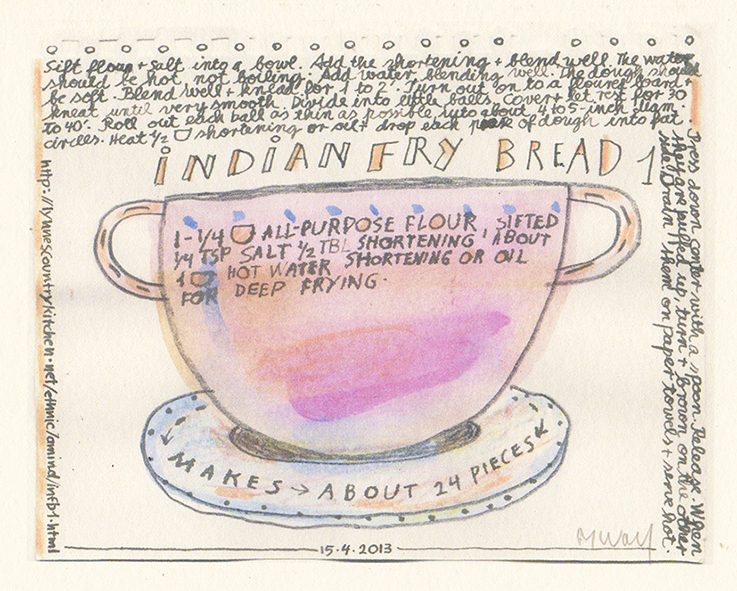 Sift flour + salt into a bowl. Add the shortening + blend well. The water
should be hot, not boiling. Add water, blending well. The dough should
be soft. Blend well + knead for 1 to 2'. Turn out on to a floured board +
kneat until very smooth. Divide into little balls. Cover + let rest for 30
to 40'. Roll out each ball as thin as possible into about 4 to 5-inch diam.
circles. Heat 1/2 shortening or oil + drop each of dough into fat.
INDIAN FRY BREAD 1
1-1/4 ALL-PURPOSE FLOUR, SIFTED
1/4 TSP SALT 1/2 TBL SHORTENING, ABOUT
1 HOT WATER SHORTENING OR OIL
FOR DEEP FRYING.
MAKES → ABOUT 24 PIECES
Press down center with a spoon. Release. When
they are puffed up, turn + brown on the other
side. Drain them on paper towels + serve hot.
http://lynnescountrykitchen.net/ethnic/amind/infb1.html
15.4.2013